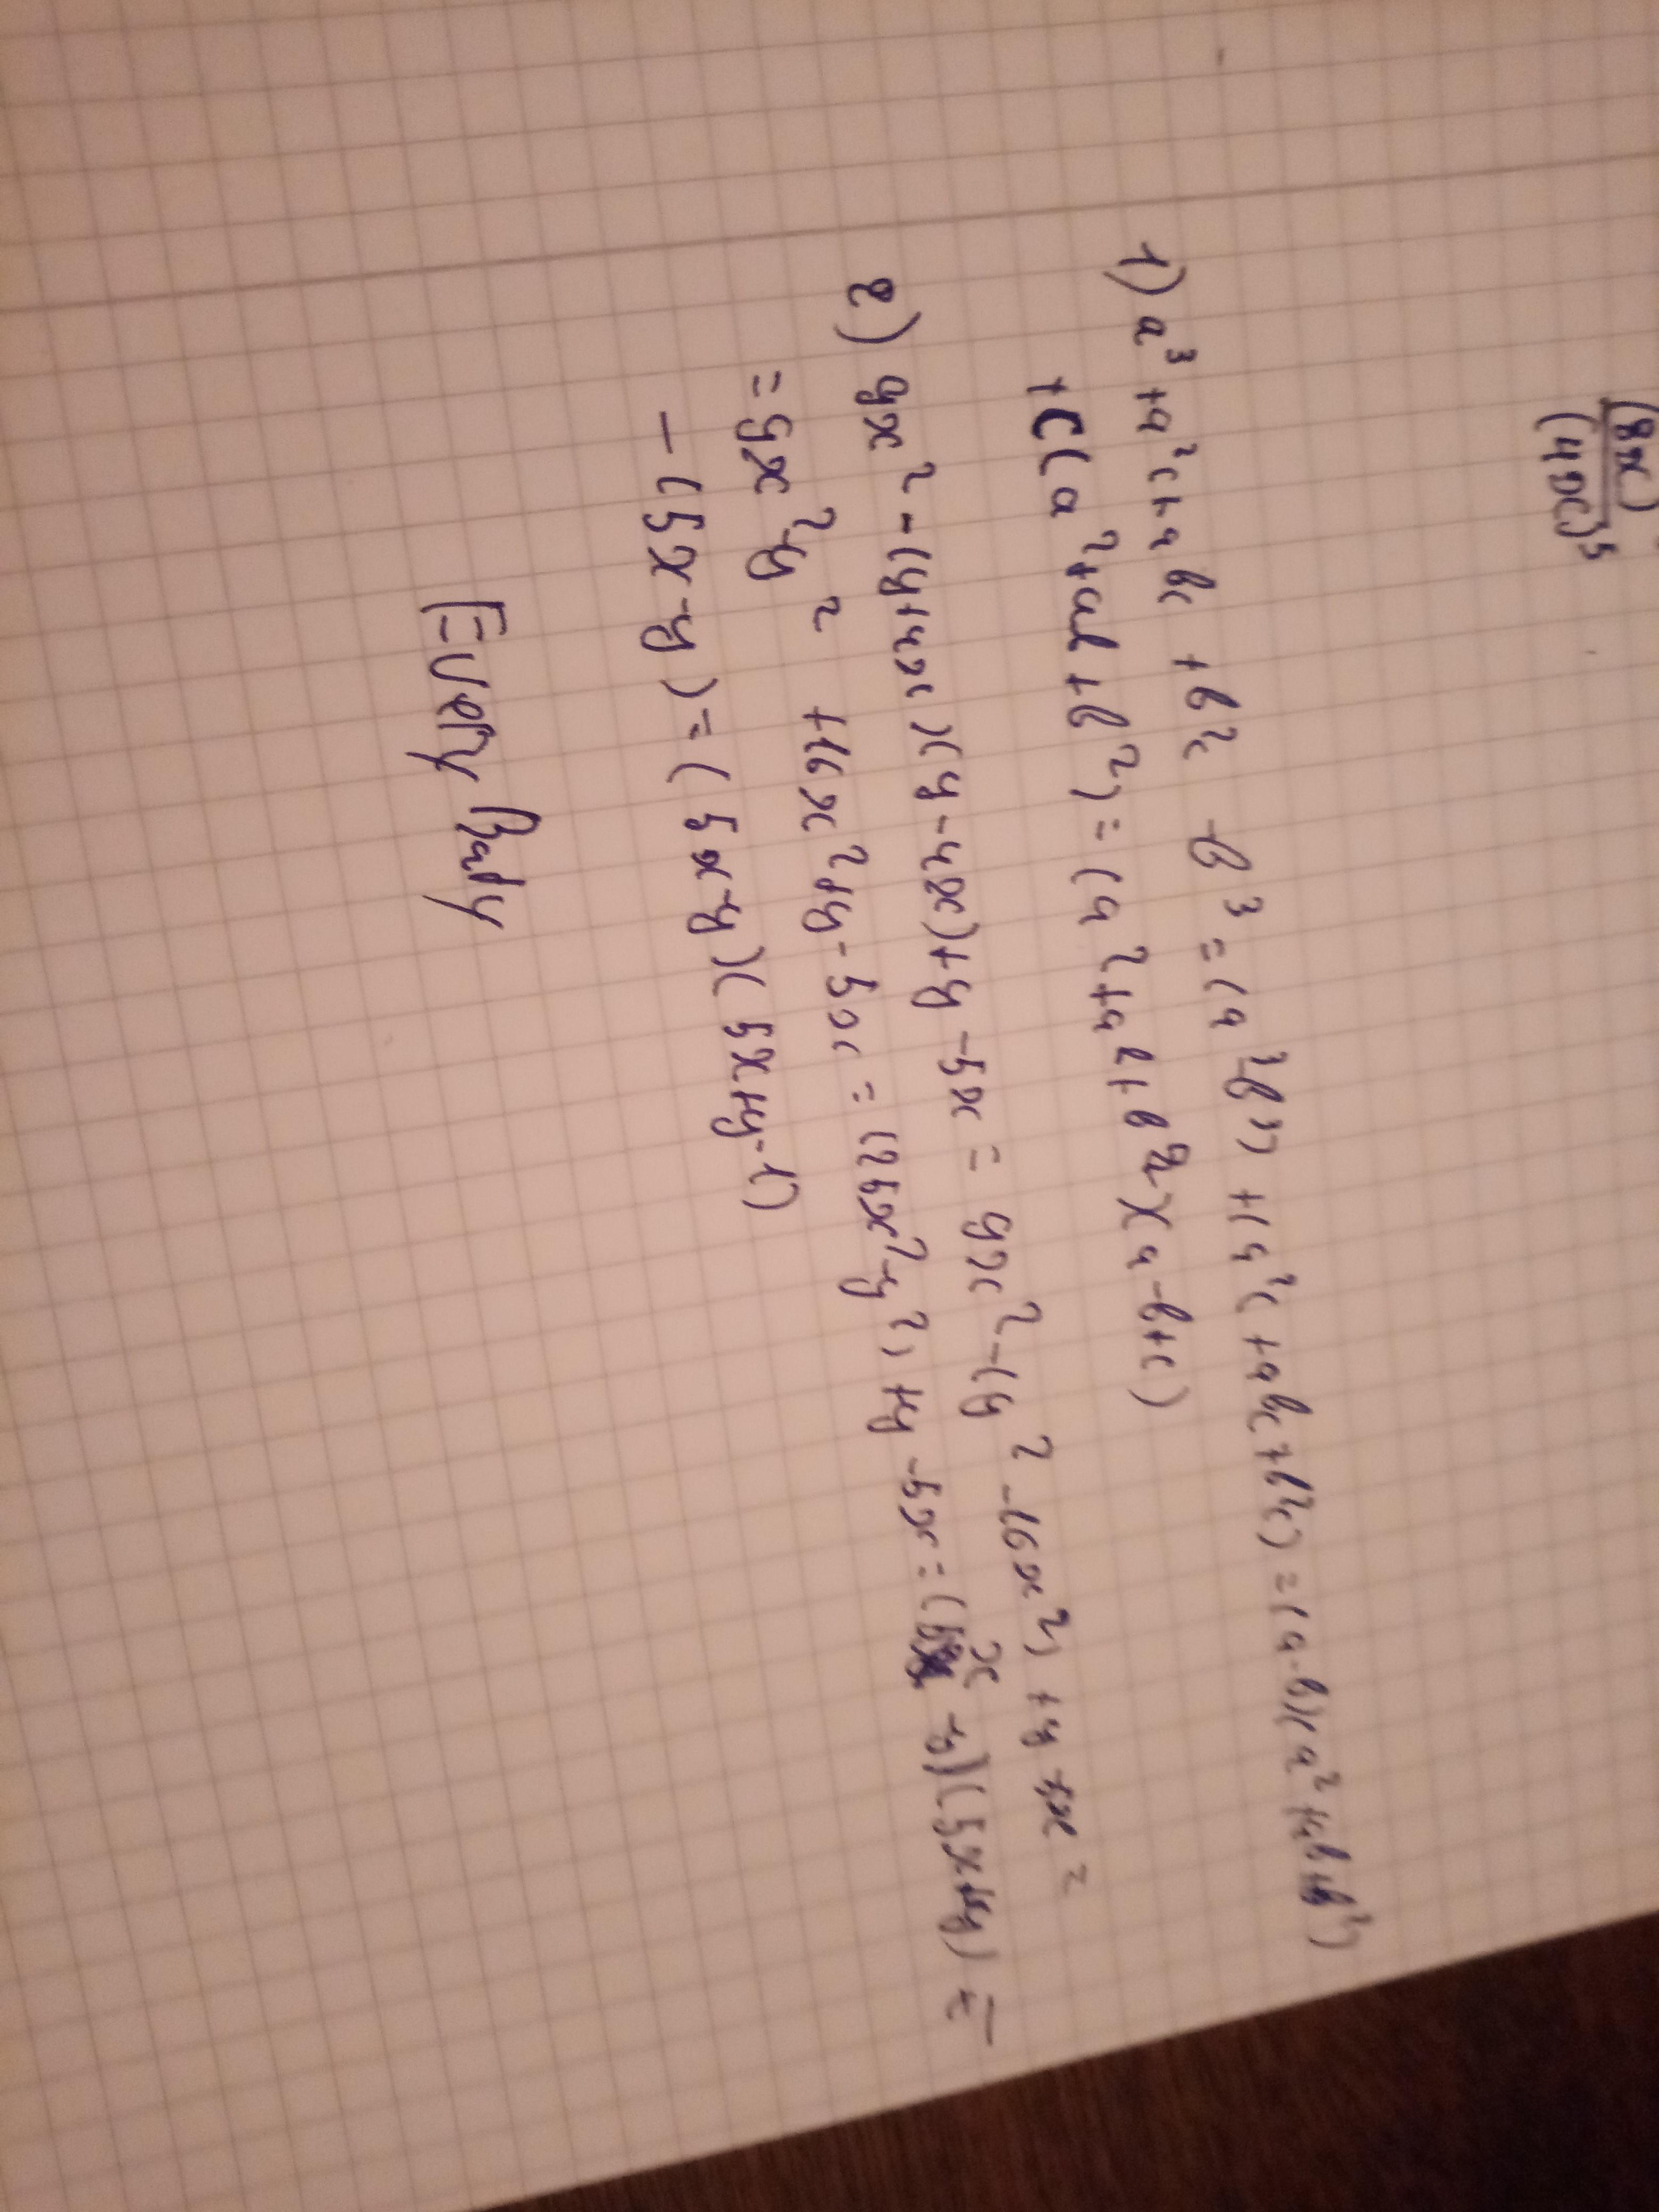 (8x)
(4x)⁵
1) a³+a²c+abc+b²c-b³=(a³-b³)+(a²c+abc+b²c)=(a-b)(a²+ab+b²)
+c(a²+ab+b²)=(a²+ab+b²)(a-b+c)
2) 9x²-(y+4x)(y-4x)+y-5x=9x²-(y²-16x²)+y-5x=
=9x²-y²+16x²+y-5x=(25x²-y²)+y-5x=(5x-y)(5x+y)-
-(5x-y)=(5x-y)(5x+y-1)